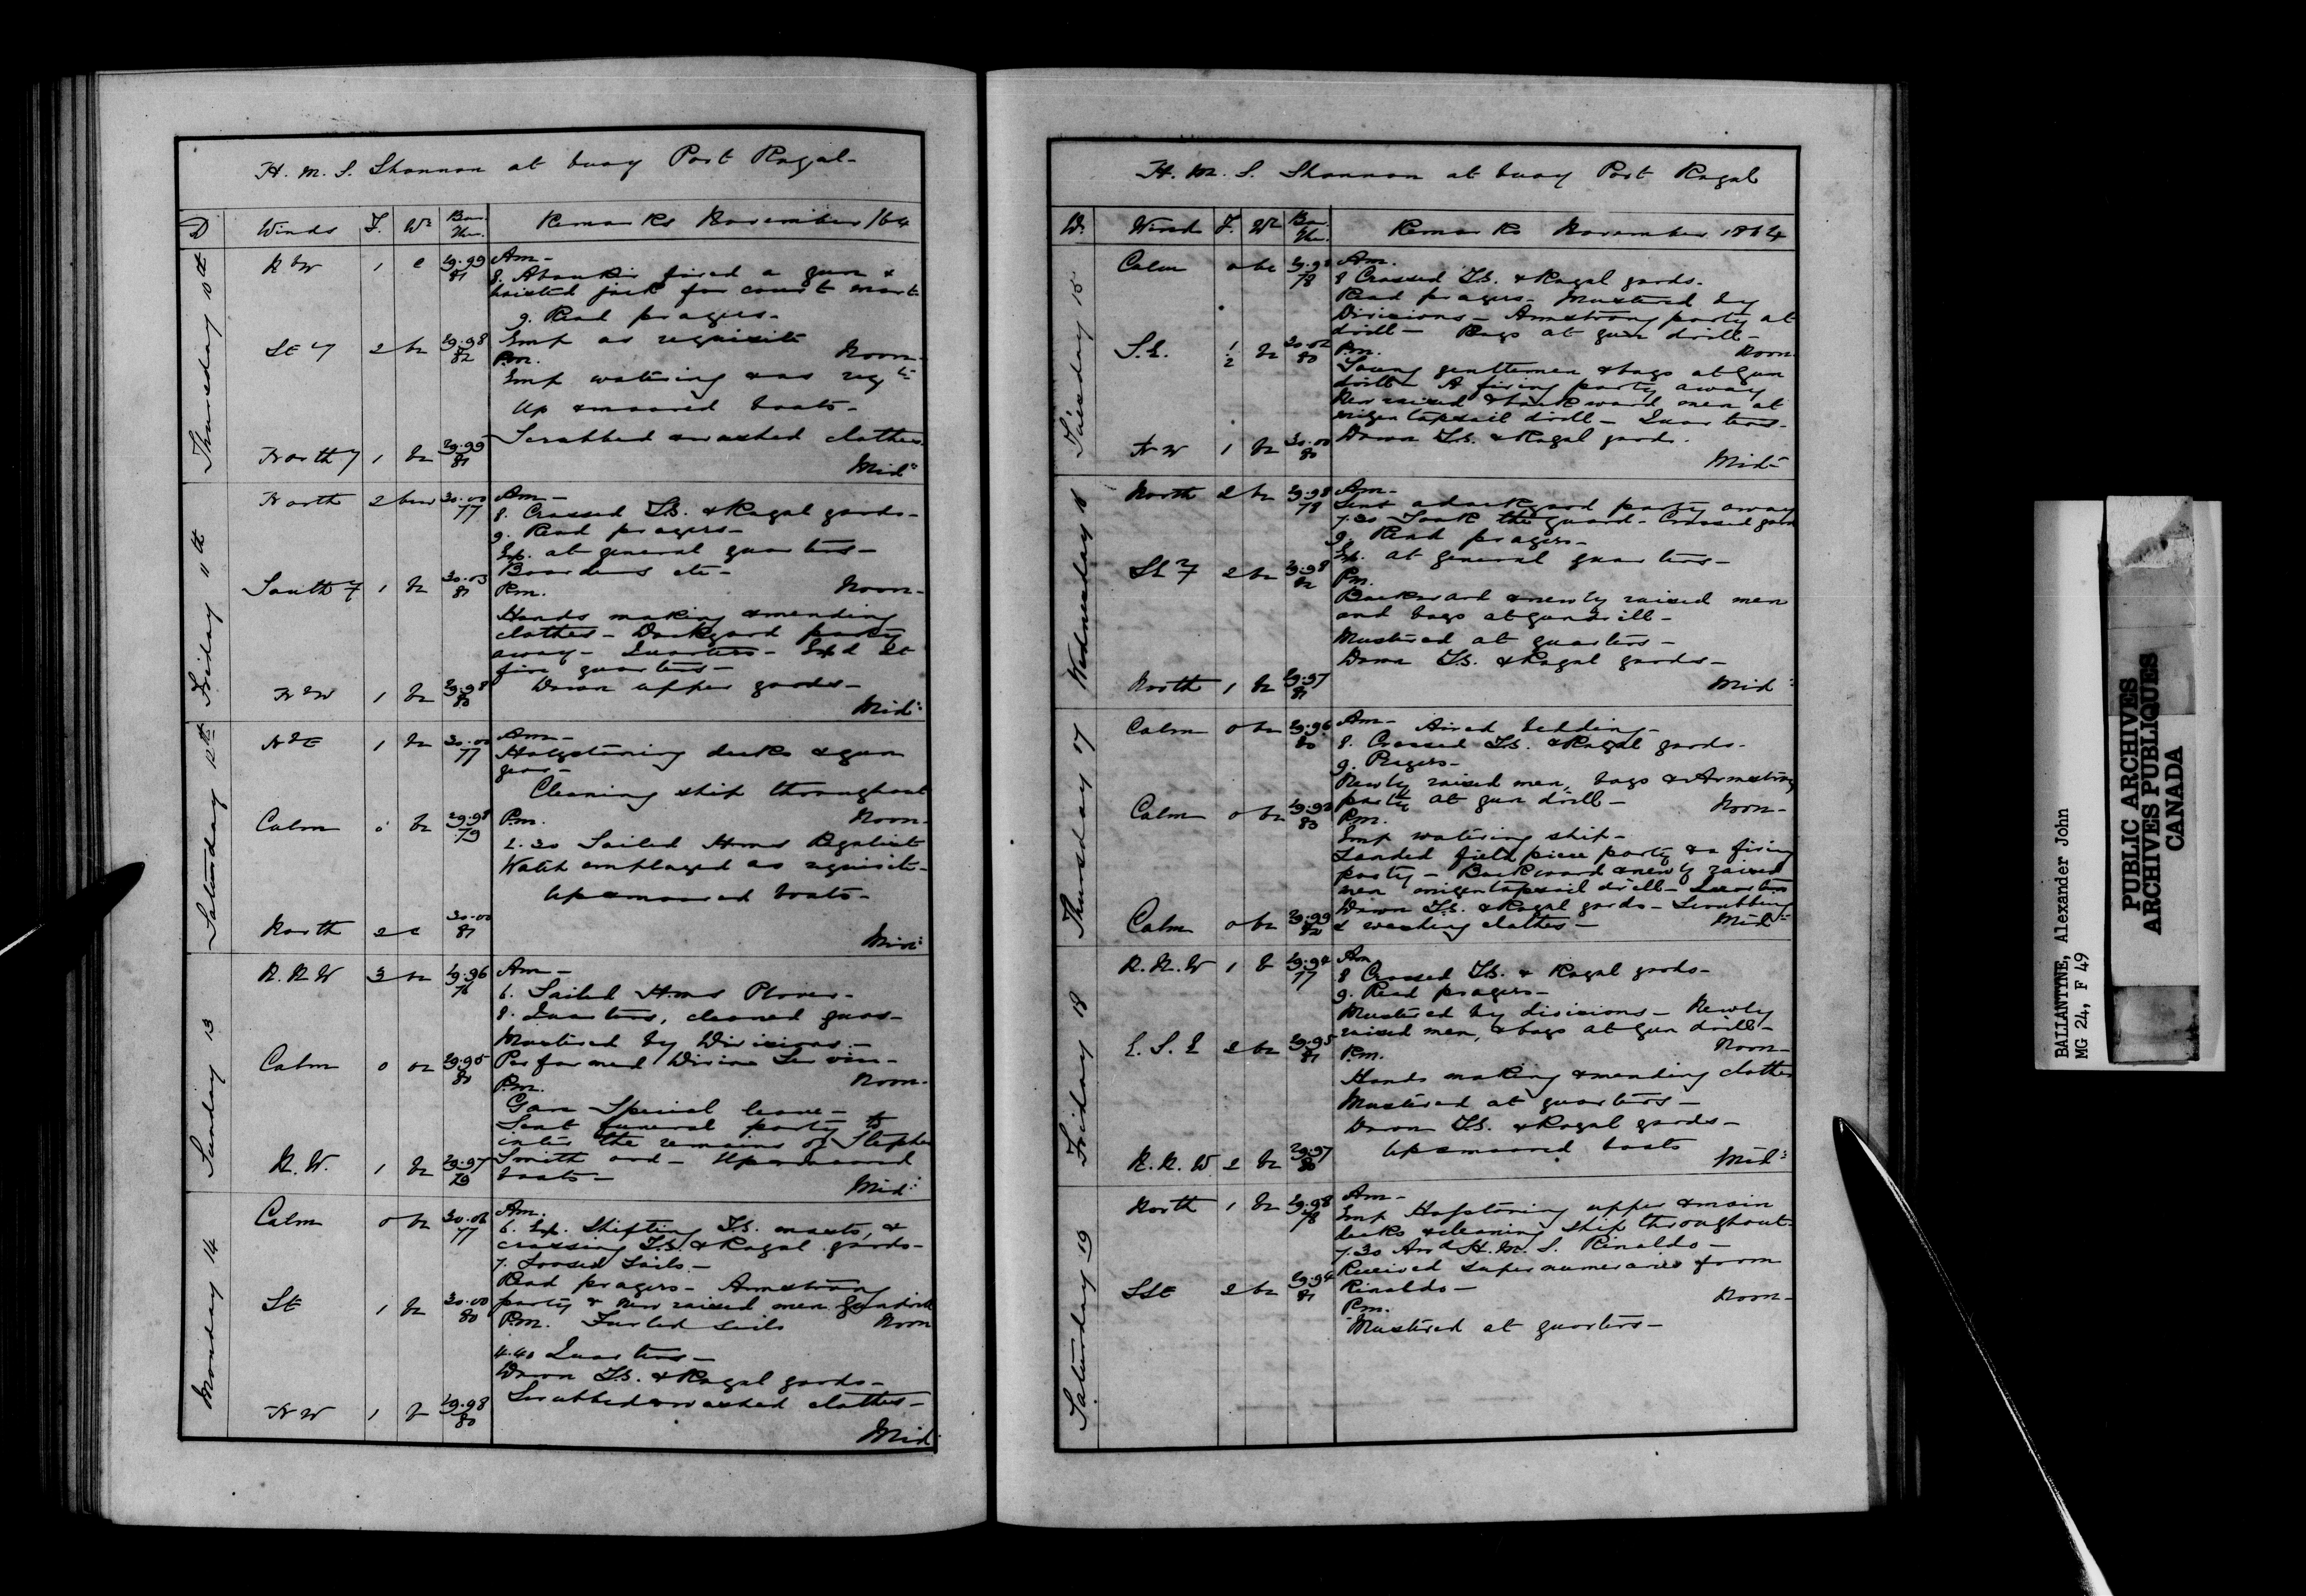 H. M. S. Shannon at buoy Port Royal-
D Winds F. Wr Bar. Ther. Remarks November /64
Thursday 10th
NbW 1 c 29.99 81 Am-
8. Aboukir fired a gun &
hoisted jack for court mart.
9. Read prayers-
SE'y 2 bc 29.98 82 Emp as requisite
Pm. Noon-
Emp watering & as reqte
Up & moored boats-
North'y 1 bc 29.99 81 Scrubbed & washed clothes
Midt
Friday 11th
North 2 bcm 30.00 77 Am-
8. Crossed T.G. & Royal yards-
9. Read prayers-
Ex. at general quarters-
Boarders etc-
South'y 1 bc 30.03 81 Pm. Noon-
Hands making & mending
clothes- Dockyard party
away- Quarters- Exd at
fire quarters-
NbW 1 bc 29.98 80 Down upper yards-
Midt
Saturday 12th
NbE 1 bc 30.00 77 Am-
Holystoning decks & gun
gear-
Cleaning ship throughout
Calm 0 bc 29.98 79 Pm. Noon-
1.30 Sailed Hms
Watch employed as requisite-
Up & moored boats-
North 2 c 30.00 81
Midt
Sunday 13
N.N.W 3 bc 29.96 76 Am-
6. Sailed Hms Plover-
8. Quarters, cleaned guns-
Mustered by Divisions-
Calm 0 oc 29.95 80 Performed Divine Service-
Pm. Noon-
Gave Special leave-
Sent funeral party to
inter the remains of Stephen
N.W. 1 bc 29.97 79 Smith ord- Up & moored
boats-
Midt
Monday 14
Calm 0 bc 30.06 77 Am.
6. Ex. Shifting T.G. masts, &
crossing T.G. & Royal yards-
7. Loosed Sails-
Read prayers- Armstrong
SE 1 bc 30.00 80 party & new raised men gundrill
Pm. Furled sails Noon
4.40 Quarters-
Down T.G. & Royal yards-
NW 1 b 29.98 80 Scrubbed & washed clothes-
Midt
H. M. S. Shannon at buoy Port Royal
D. Wind F. Wr Bar. Ther. Remarks November 1864
Tuesday 15
Calm 0 bc 29.98 78 Am.
8 Crossed T.G. & Royal yards.
Read prayers- Mustered by
Divisions- Armstrong party at
drill- Boys at gun drill-
S.E. 1 2 bc 30.02 80 Pm. Noon
Young gentlemen & boys at Gun
drill- A firing party away
New raised & backward men at
mizen topsail drill- Quarters-
NW 1 bc 30.00 80 Down T.G. & Royal yards.
Midt
Wednesday 16
North 2 bc 29.98 78 Am-
Sent a dockyard party away
7.30 Took the guard- Crossed yards
9. Read prayers-
Ex. at general quarters-
SE'y 2 bc 29.98 82 Pm.
Backward & newly raised men
and boys at gundrill-
Mustered at quarters-
Down T.G. & Royal yards-
North 1 bc 29.97 81 Midt
Thursday 17
Calm 0 bc 29.96 80 Am- Aired bedding-
8. Crossed T.G. & Royal yards-
9. Prayers-
Newly raised men, boys & Armstrong
party at gun drill- Noon-
Calm 0 bc 29.93 83 Pm.
Emp watering ship-
Landed field piece party & a firing
party- Backward & newly raised
men mizentopsail drill- Quarters
Down T.G. & Royal yards- Scrubbing
Calm 0 bc 29.99 82 & washing clothes- Midt
Friday 18
N.N.W 1 b 29.94 77 Am
8 Crossed T.G. & Royal yards-
9. Read prayers-
Mustered by divisions- Newly
raised men, & boys at Gun drill-
E.S.E 2 bc 29.95 81 Pm. Noon-
Hands making & mending clothes
Mustered at quarters-
Down T.G. & Royal yards-
N.N.W 2 bc 29.97 80 Up & moored boats Midt
Saturday 19
North 1 bc 29.98 78 Am-
Emp Holystoning upper & main
decks & cleaning ship throughout-
7.30 Arrd H.M.S. Rinaldo-
Received supernumeraries from
SSE 2 bc 29.94 81 Rinaldo- Noon-
Pm.
Mustered at quarters-
BALLANTYNE, Alexander John
MG 24, F 49
PUBLIC ARCHIVES
ARCHIVES PUBLIQUES
CANADA